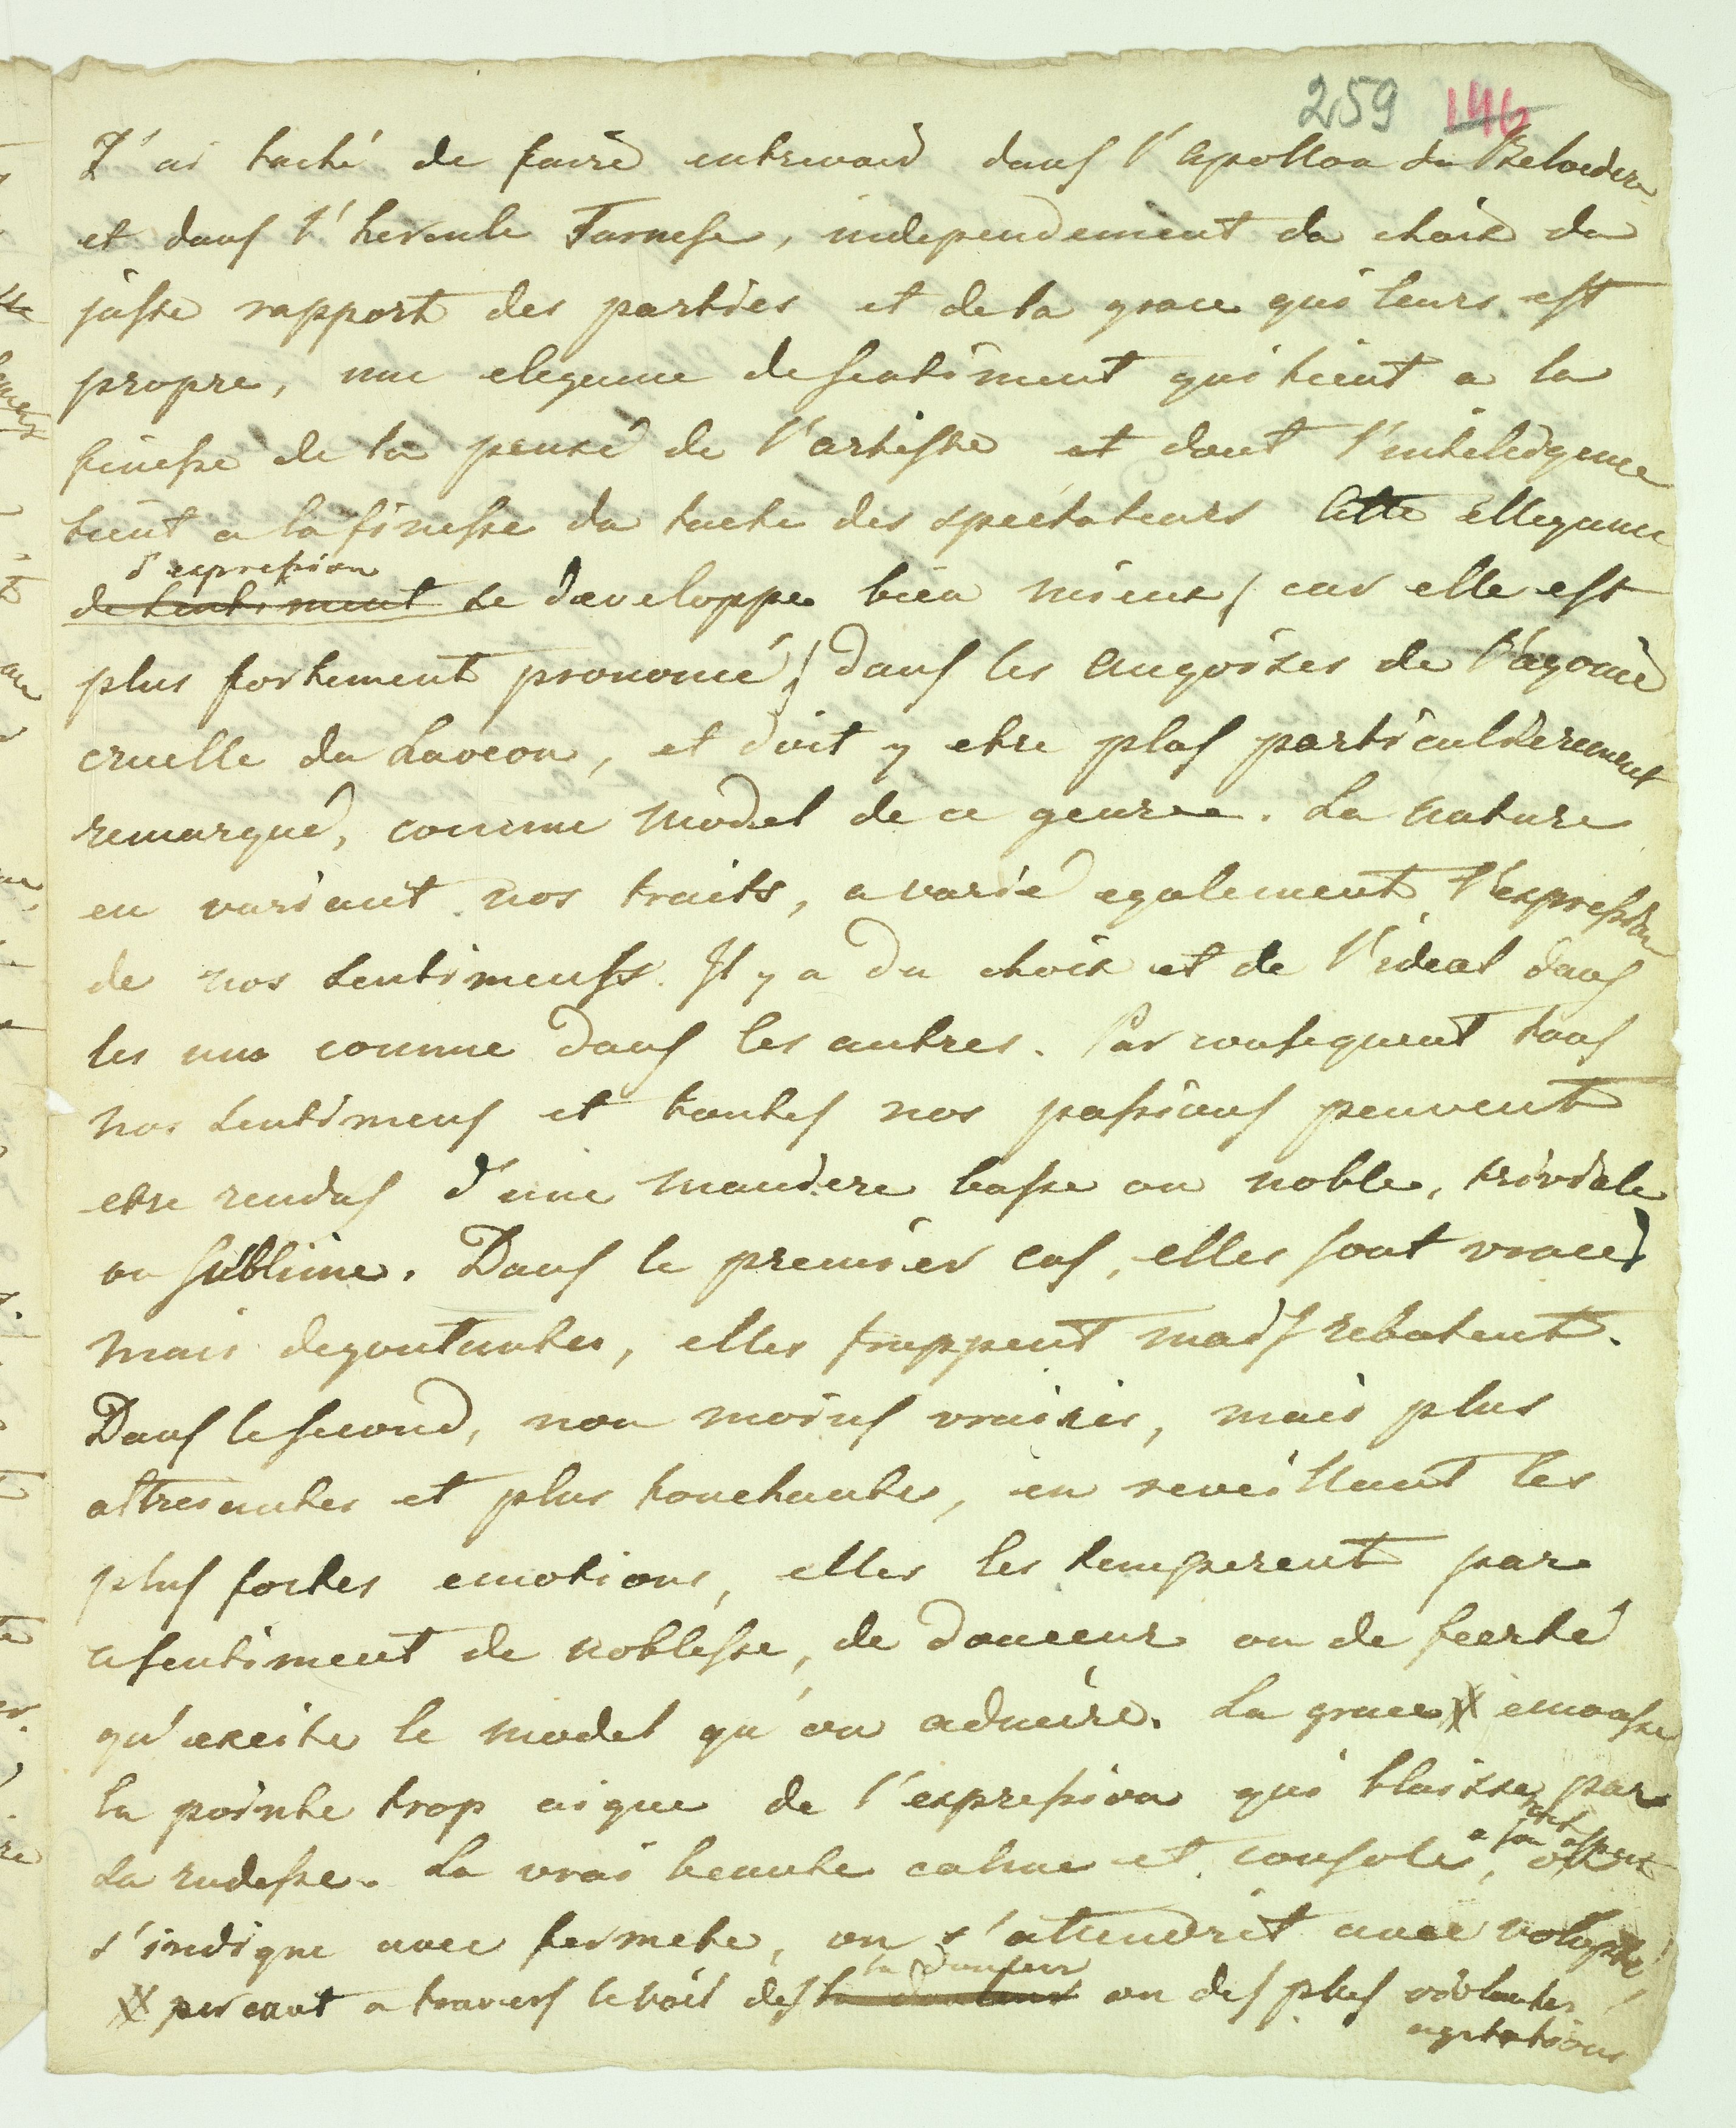 259 146
J'ai taché de faire entrevoir dans l'apollon du Belvedere
et dans l'hercule Farnese, independement du choix du
juste rapport des parties et de la grace qui leurs est
propre, une elegance de sentiment qui tient a la
finesse de la pensé de l'artiste et dont l'inteligence
tient a la finesse du tacte des spectateurs Cette ellegance
d'expression
de sentiment se developpe bien mieux (car elle est
plus fortement prononcé) dans les angoises de l'agonie
cruelle du Laocon, et doit y etre plus particulierement
remarqué, comme model de ce genre. La nature
en variant nos traits, a varié egalement l'expression
de nos sentiments. Il y a du choix et de l'ideal dans
les uns comme dans les autres. Par consequent tous
nos sentimens et toutes nos passions peuvent
etre rendus d'une maniere basse ou noble, triviale
ou sublime. Dans le premier cas, elles sont vraies
mais degoutantes, elles frappent mais rebutent.
Dans le second, non moins vraies, mais plus
attreiantes et plus touchantes, en reveillant les
plus fortes emotions, elles les temperent par
ce sentiment de noblesse, de douceur ou de fierté
qu'excite le model qu'on admire. La grace X emousse
la pointe trop aigue de l'expression qui blaisse par
sa rudesse. La vrai beauté calme et console, on
a son aspect
s'indigne avec fermeté, on s'attendrit avec volupté
la douleur
X percant a travers le voil des la douleur ou des plus violentes
agitations